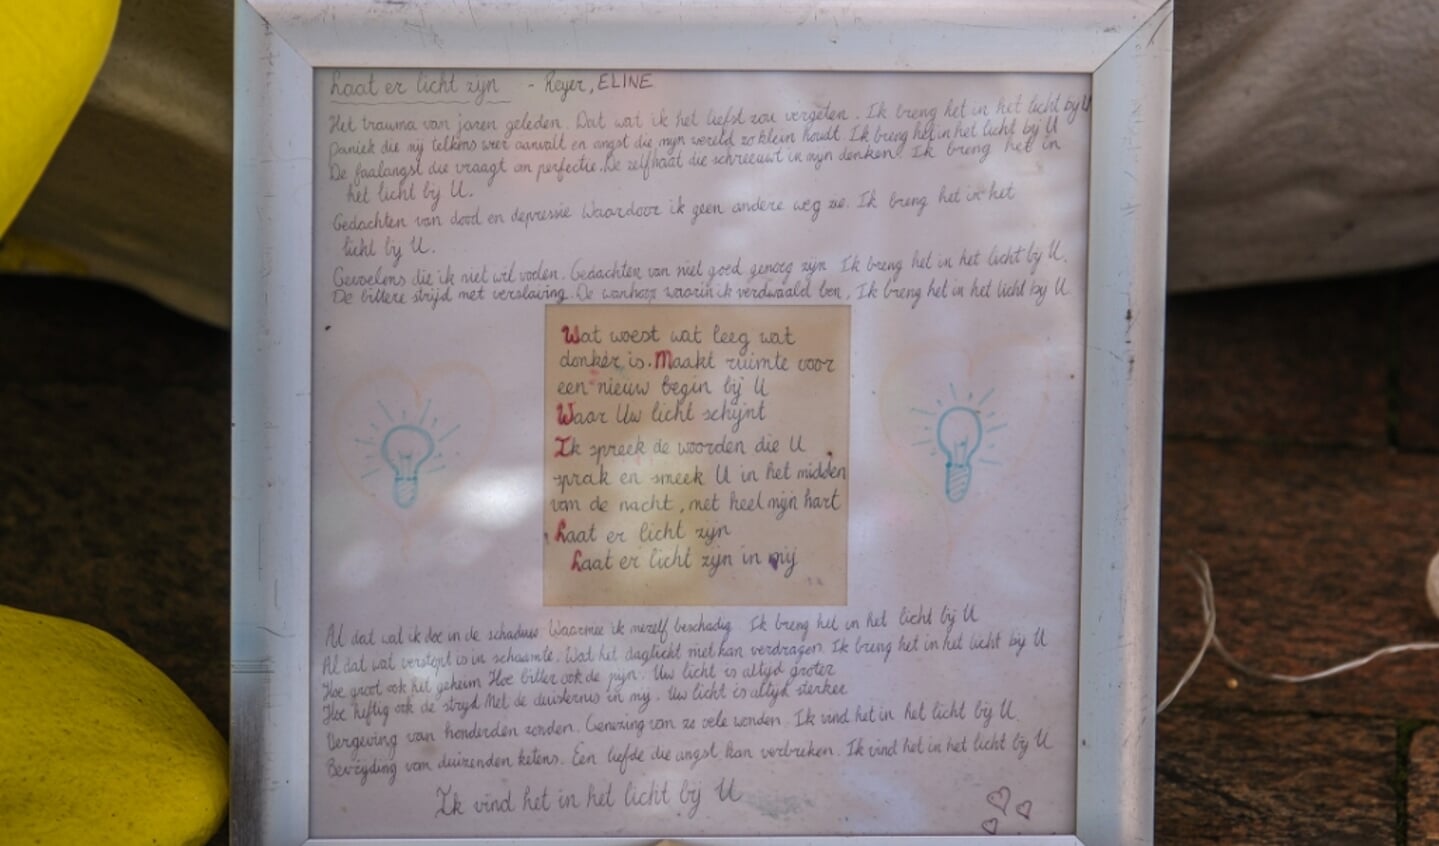 Laat er licht zijn - Reyer, ELINE
Het trauma van jaren geleden. Dat wat ik het liefst zou vergeten. Ik breng het in het licht bij U
Paniek die mij telkens weer aanvalt en angst die mijn wereld zo klein houdt. Ik breng het in het licht bij U
De faalangst die vraagt om perfectie. De zelfhaat die schreeuwt in mijn denken. Ik breng het in
het licht bij U.
Gedachten van dood en depressie Waardoor ik geen andere weg zie. Ik breng het in het
licht bij U.
Gevoelens die ik niet wil voelen. Gedachten van niet goed genoeg zijn Ik breng het in het licht bij U.
De bittere strijd met verslaving. De wanhoop waarin ik verdwaald ben, Ik breng het in het licht bij U
Wat woest wat leeg wat
donker is. Maakt ruimte voor
een nieuw begin bij U
Waar Uw licht schijnt
Ik spreek de woorden die U
sprak en smeek U in het midden
van de nacht, met heel mijn hart
Laat er licht zijn
Laat er licht zijn in mij
Al dat wat ik doe in de schaduw Waarmee ik mezelf beschadig Ik breng het in het licht bij U
Al dat wat verstopt is in schaamte. Wat het daglicht niet kan verdragen. Ik breng het in het licht bij U
Hoe groot ook het geheim Hoe bitter ook de pijn. Uw licht is altijd groter
Hoe heftig ook de strijd Met de duisternis in mij. Uw licht is altijd sterker
Vergeving van honderden zonden. Genezing van zo vele wonden. Ik vind het in het licht bij U.
Bevrijding van duizenden ketens. Een liefde die angst kan verbreken. Ik vind het in het licht bij U
Ik vind het in het licht bij U